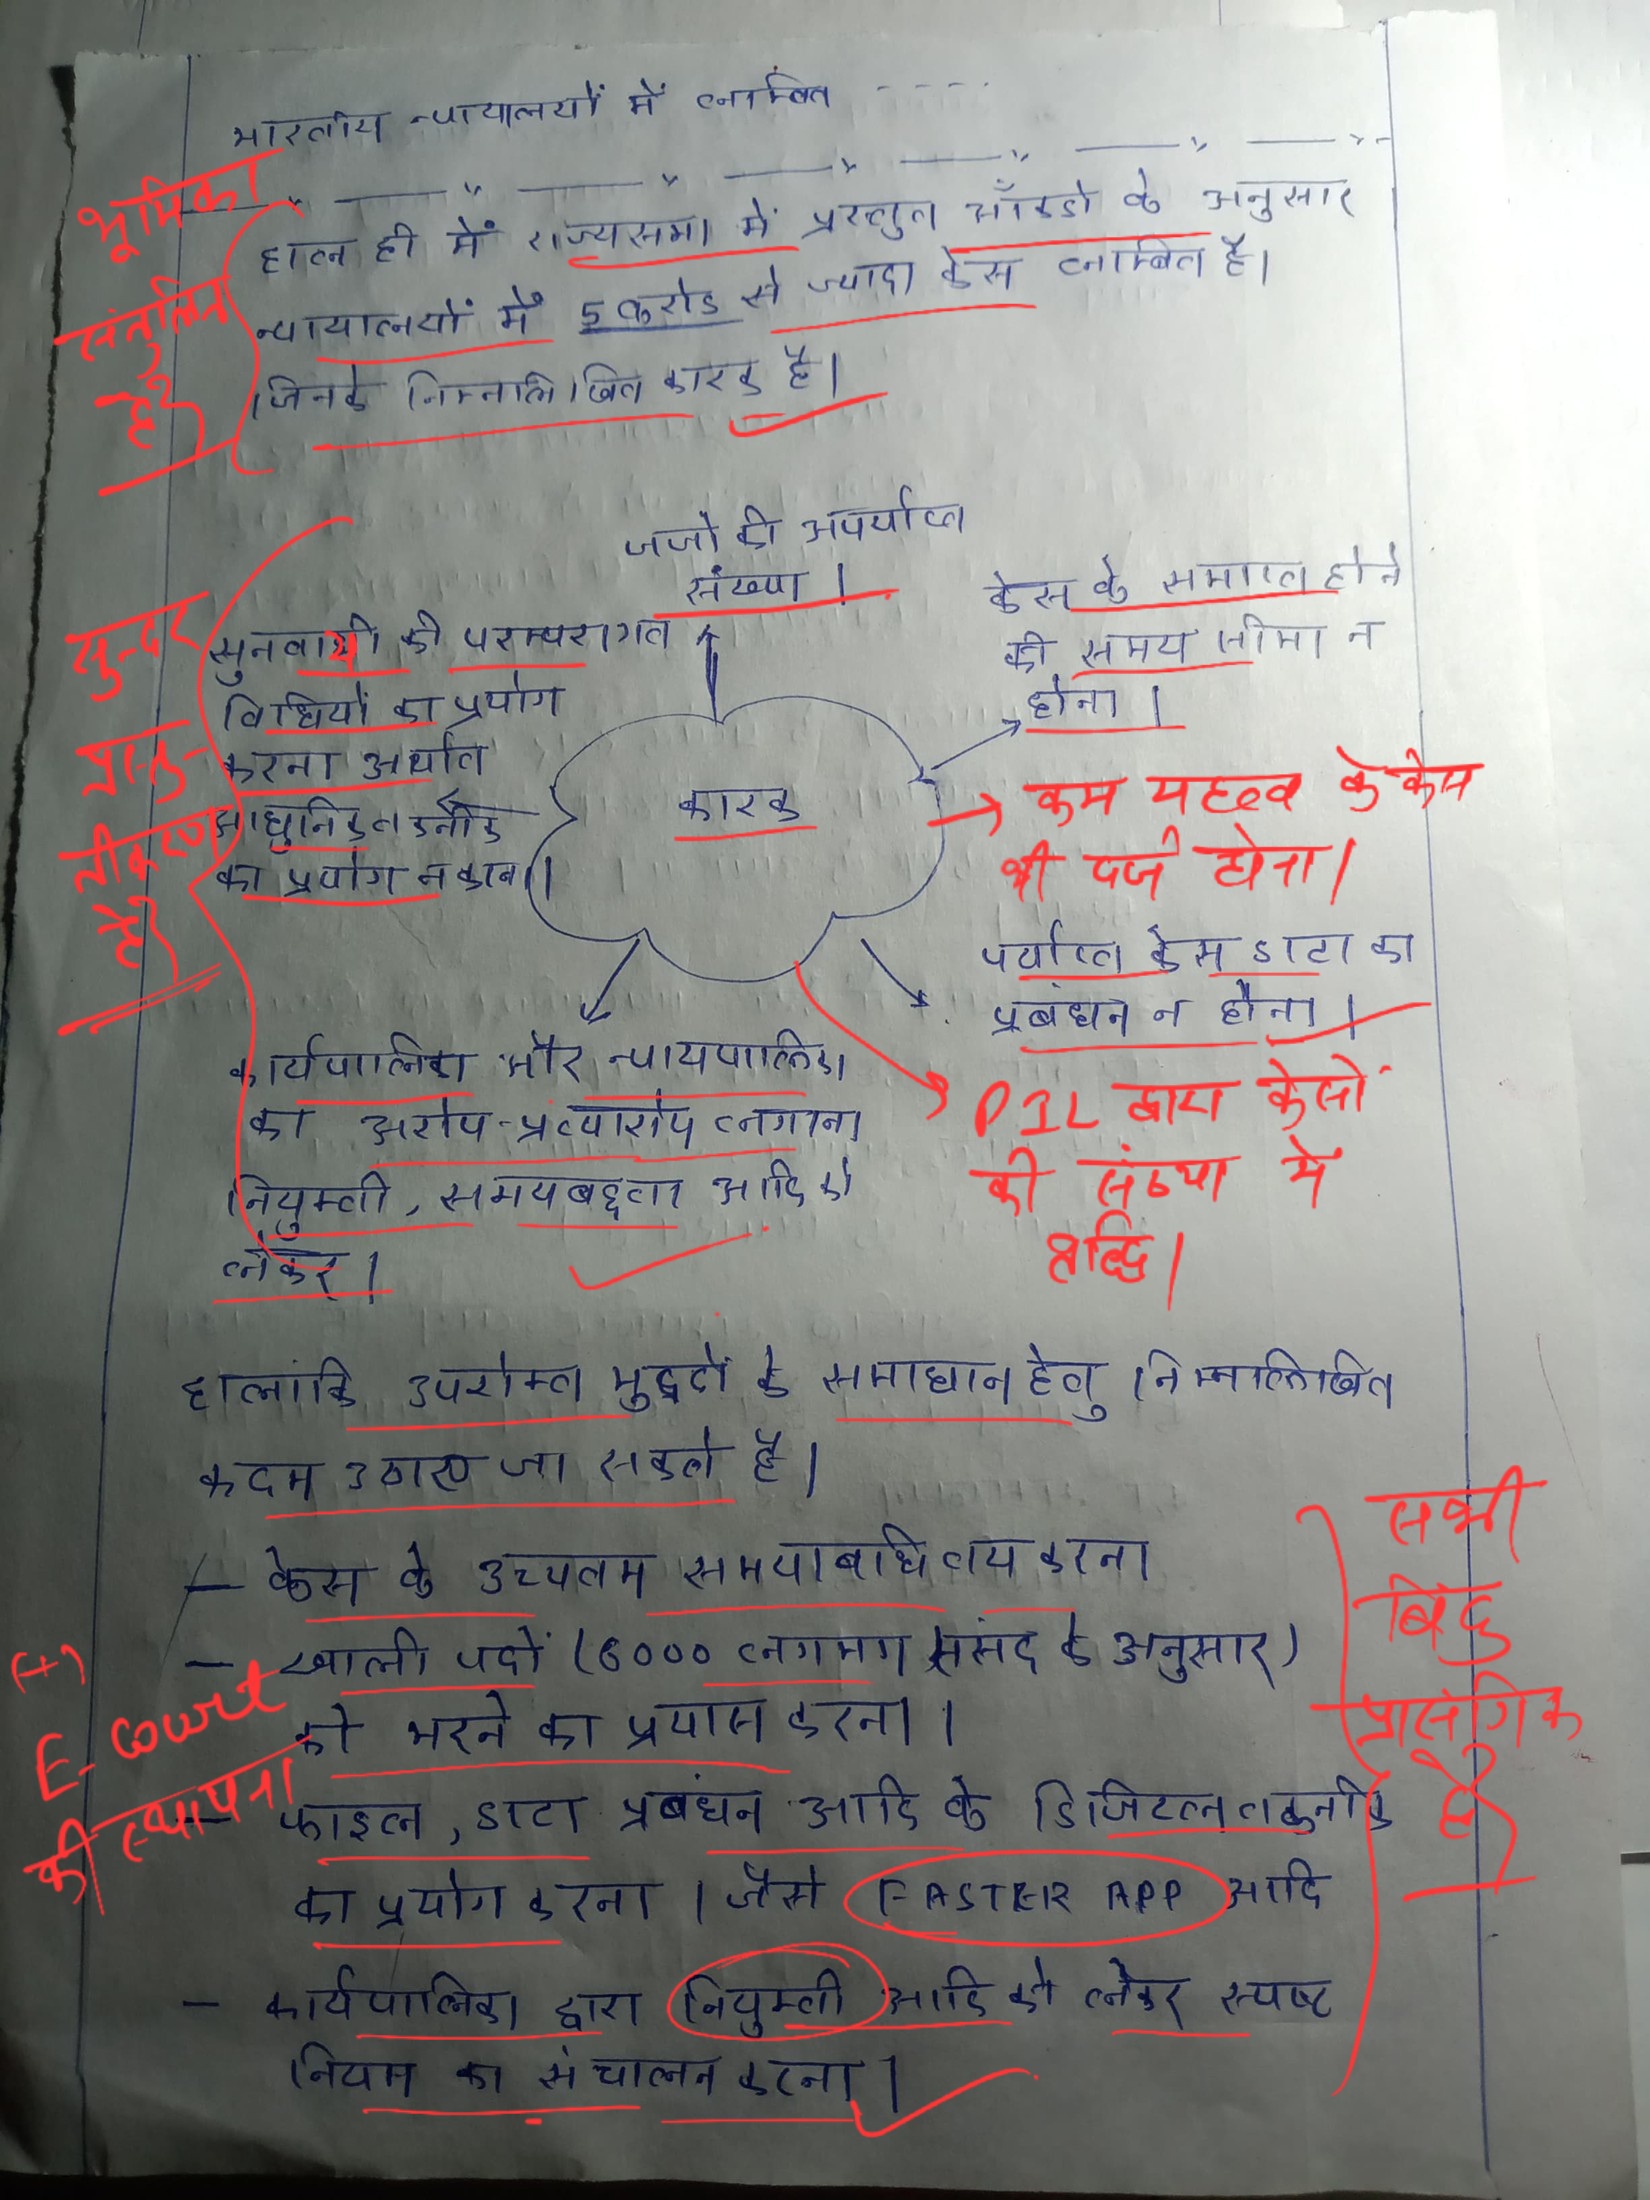 भारतीय न्यायालयों में लाम्बित - - - -
भूमिका
संतुलित
है
हाल ही में राज्यसभा में प्रस्तुत आँकडो के अनुसार
न्यायालयों में 5 करोड से ज्यादा केस लाम्बित है।
जिनके निम्नलिखित कारक है।
सुन्दर
प्रस्तु-
तीकरण
है
जजो की अपर्याप्त
संख्या।
केस के समाप्त होने
की समय सीमा न
होना।
सुनवायी की परम्परागत
विधियों का प्रयोग
करना अर्थात
आधुनिक तकनीक
का प्रयोग न करना।
कारक
→ कम महत्व के केस
भी दर्ज होना।
पर्याप्त केस डाटा का
प्रबंधन न होना।
PIL द्वारा केसों
की संख्या में
वृद्धि।
कार्यपालिका और न्यायपालिका
का अरोप-प्रत्यारोप लगाना
नियुक्ती, समयबद्दता आदि को
लेकर।
हालांकि उपरोक्त मुद्ददों के समाधान हेतु निम्नलिखित
कदम उठाए जा सकते है।
- केस के उच्चतम समयाबाधि तय करना
- खाली पदों (6000 लगभग संसद के अनुसार)
को भरने का प्रयास करना।
- फाइल, डाटा प्रबंधन आदि के डिजिटल तकनीक
का प्रयोग करना। जैसे FASTER APP आदि
- कार्यपालिका द्वारा नियुक्ती आदि को लेकर स्पष्ट
नियम का संचालन करना।
(+)
E-court
की स्थापना
सभी
बिंदु
प्रासंगिक
है